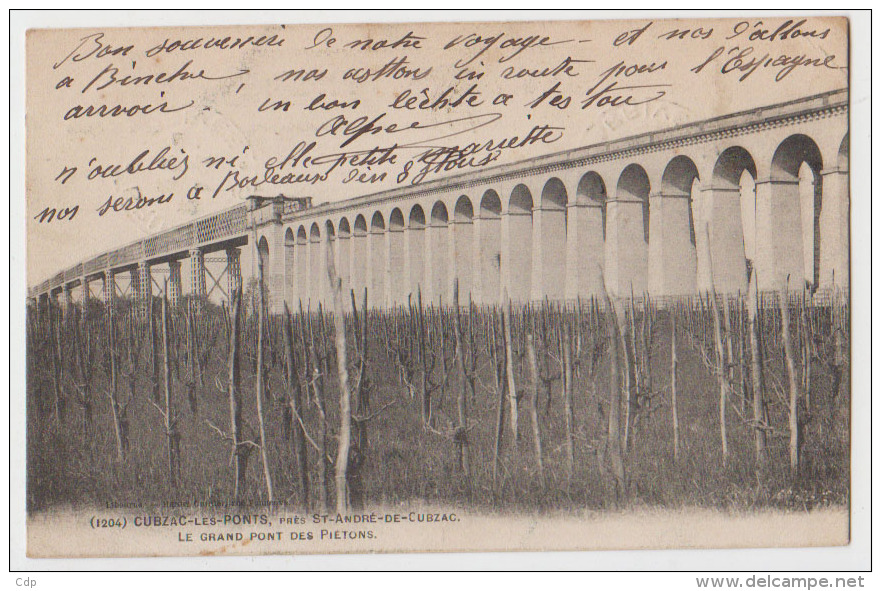 Bon souvenir de notre voyage - et nos d'allons
a Binche nos asttons in route pour l'Espagne
arrvoir - in bon a tes tou
Alpe
n'oubliez ni elle petite Mariette
nos serons a Bordeaux
Libourne
(1204) CUBZAC-LES-PONTS, PRÈS ST-ANDRÉ-DE-CUBZAC.
LE GRAND PONT DES PIÉTONS.
Cdp
www.delcampe.net